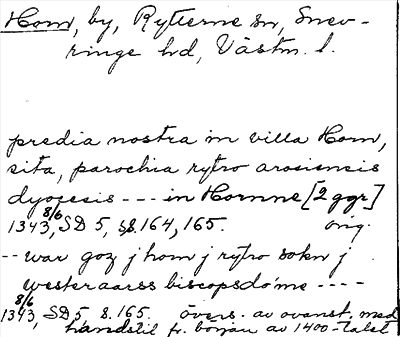 Horn, by, Rytterne sn, Snev-
ringe hd, Västm. l.
predia nostra in villa Horn,
sita, parochia rytro arosiensis
dyocesis --- in Hornne [2 ggr]
8/6 1343, SD 5, s. 164, 165. orig.
-- war goz j horn j rytro sokn j
westeraarss biscopsdóme ----
8/6 1343, SD 5 s. 165. övers. av ovanst. med
handstil fr. början av 1400-talet